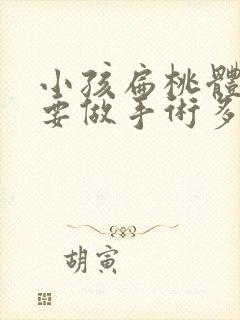 小孩扁桃體
要做手術多
胡寅